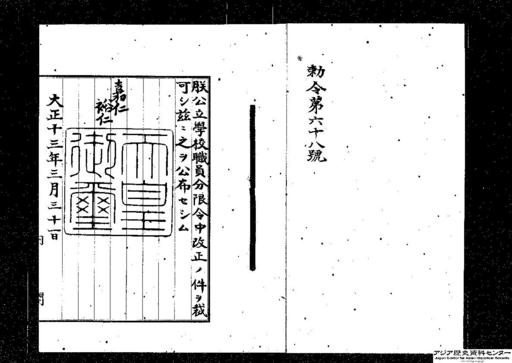 勅令第六十八號
朕公立學校職員分限令中改正ノ件ヲ裁
可シ茲ニ之ヲ公布セシム
嘉仁
裕仁
天皇
御璽
大正十三年三月三十一日
内閣
アジア歴史資料センター
Japan Center for Asian Historical Records